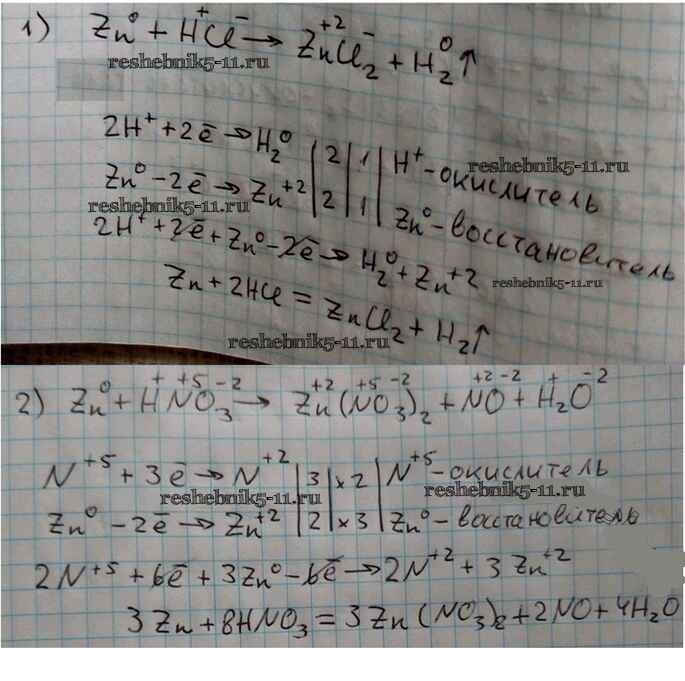 1) Zn⁰ + H⁺Cl⁻ → Zn⁺²Cl₂⁻ + H₂⁰↑
reshebnik5-11.ru
2H⁺ + 2ē → H₂⁰ | 2 | 1 | H⁺ - окислитель
reshebnik5-11.ru
Zn⁰ - 2ē → Zn⁺² | 2 | 1 | Zn⁰ - восстановитель
reshebnik5-11.ru
2H⁺ + 2ē + Zn⁰ - 2ē → H₂⁰ + Zn⁺²
reshebnik5-11.ru
Zn + 2HCl = ZnCl₂ + H₂↑
reshebnik5-11.ru
2) Zn⁰ + H⁺N⁺⁵O₃⁻² → Zn⁺²(N⁺⁵O₃⁻²)₂ + N⁺²O⁻² + H₂⁺O⁻²
N⁺⁵ + 3ē → N⁺² | 3 | ×2 | N⁺⁵ - окислитель
reshebnik5-11.ru reshebnik5-11.ru
Zn⁰ - 2ē → Zn⁺² | 2 | ×3 | Zn⁰ - восстановитель
2N⁺⁵ + 6ē + 3Zn⁰ - 6ē → 2N⁺² + 3Zn⁺²
3Zn + 8HNO₃ = 3Zn(NO₃)₂ + 2NO + 4H₂O